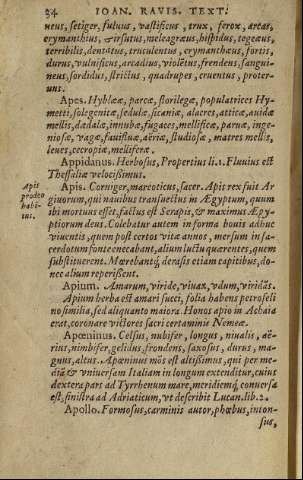 24 IOAN. RAVIS. TEXT.
neus, setiger, fuluus, vastificus, trux, ferox, arcas,
erymanthius, hirsutus, meleagræus, hispidus, tegeæus,
terribilis, dentatus, truculentus, erymanthæus, fortis,
durus, vulnificus, arcadius, violẽtus, frendens, sangui-
neus, sordidus, strictus, quadrupes, cruentus, proter-
uus.
Apes. Hyblææ, parcæ, florilegæ, populatrices Hy-
metti, solegenitæ, sedulæ, sicaniæ, alacres, atticæ, auidæ
mellis, dædalæ, innubæ, fugaces, mellificæ, paruæ, inge-
niosæ, vagæ, fauistæ, aëriæ, studiosæ, matres mellis,
leues, cecropiæ, melliferæ.
Appidanus. Herbosus, Propertius li. 1. Fluuius est
Thessaliæ velocissimus.
Apis
prodeo
habi-
tus.
Apis. Corniger, mareoticus, sacer. Apis rex fuit Ar
giuorum, qui nauibus transuectus in Ægyptum, quum
ibi mortuus esset, factus est Serapis, & maximus Ægy-
ptiorum deus. Colebatur autem in forma bouis adhuc
viuentis, quem post certos vitæ annos, mersum in sa-
cerdotum fonte enecabant, alium luctu quærentes, quem
substituerent. Mœrebantq; derasis etiam capitibus, do-
nec alium reperissent.
Apium. Amarum, viride, viuax, vdum, viridãs.
Apium herba est amari succi, folia habens petroseli
no similia, sed aliquanto maiora. Honos apio in Achaia
erat, coronare victores sacri certaminis Nemeæ.
Apœninus. Celsus, nubifer, longus, niualis, aë-
rius, nimbifer, gelidus, frondens, saxosus, durus, ma-
gnus, altus. Apœninus mõs est altissimus, qui per me-
diã & vniuersam Italiam in longum extenditur, cuius
dextera pars ad Tyrrhenum mare, meridiemq; conuersa
est, sinistra ad Adriaticum, vt describit Lucan. lib. 2.
Apollo. Formosus, carminis autor, phœbus, inton-
sus,